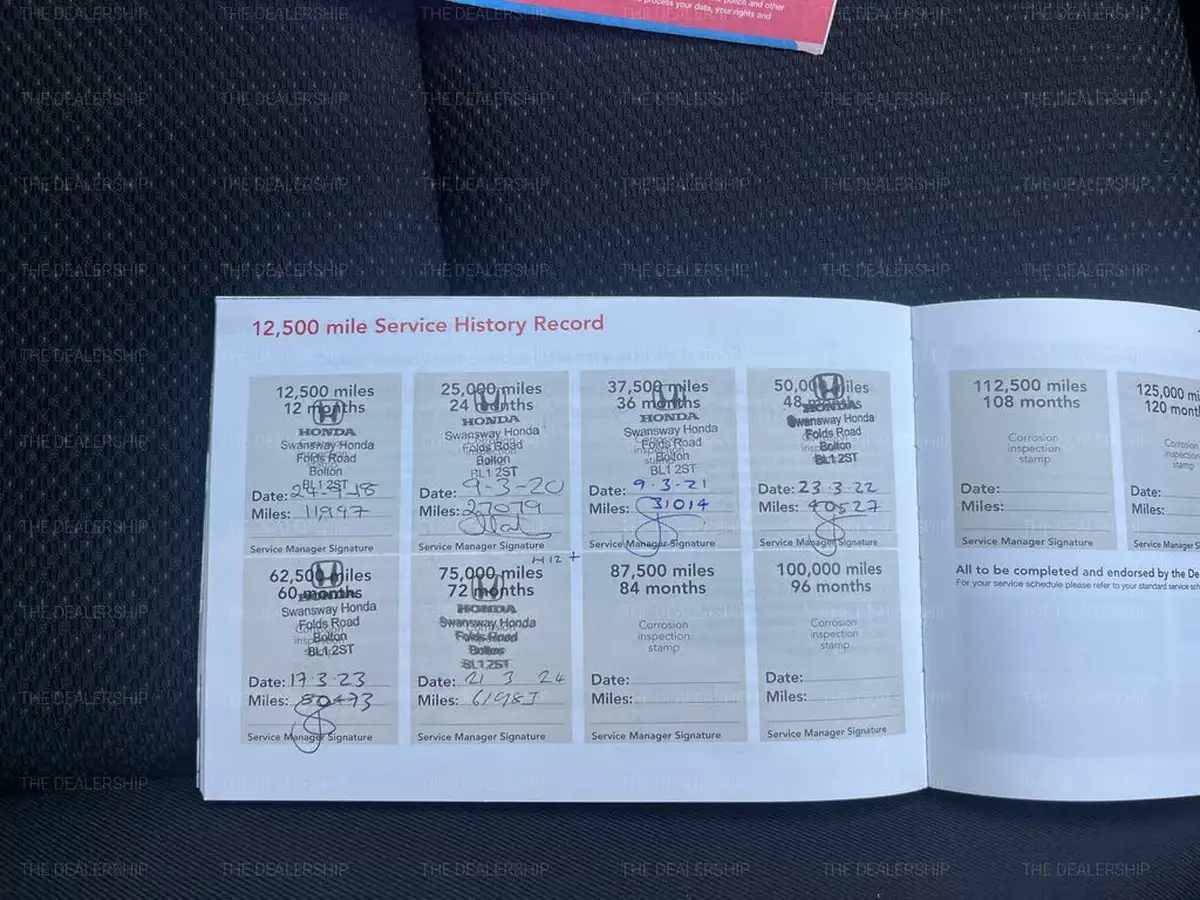 police and other
process your data, your rights and
12,500 mile Service History Record
12,500 miles
12 months
HONDA
Swansway Honda
Folds Road
Bolton
BL1 2ST
Date:
Miles: 11997
Service Manager Signature
25,000 miles
24 months
HONDA
Swansway Honda
Folds Road
Bolton
BL1 2ST
Date: 9-3-20
Miles: 27079
Service Manager Signature
37,500 miles
36 months
HONDA
Swansway Honda
Folds Road
Bolton
BL1 2ST
Date: 9.3.21
Miles: 31014
Service Manager Signature
50,000 miles
48 months
HONDA
Swansway Honda
Folds Road
Bolton
BL1 2ST
Date: 23.3.22
Miles: 40527
Service Manager Signature
62,500 miles
60 months
HONDA
Swansway Honda
Folds Road
Bolton
BL1 2ST
Date: 17.3.23
Miles: 50473
Service Manager Signature
75,000 miles
72 months
HONDA
Swansway Honda
Folds Road
Bolton
BL1 2ST
Date: 21 3 24
Miles:
Service Manager Signature
87,500 miles
84 months
Corrosion
inspection
stamp
Date:
Miles:
Service Manager Signature
100,000 miles
96 months
Corrosion
inspection
stamp
Date:
Miles:
Service Manager Signature
112,500 miles
108 months
Corrosion
inspection
stamp
Date:
Miles:
Service Manager Signature
125,000 mi
120 mont
Corrosi
inspection
stamp
Date:
Miles:
Service Manager S
All to be completed and endorsed by the De
For your service schedule please refer to your standard service sch
THE DEALERSHIP